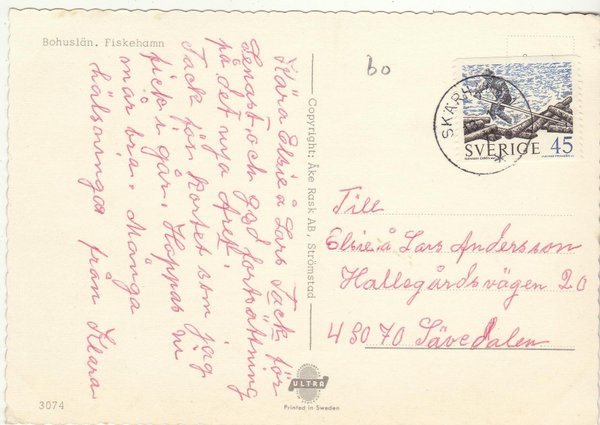 Bohuslän. Fiskehamn
bo
Kära Elsie å Lars Tack för
Senast och god fortsättning
på det nya året.
Tack för Kortet som jag
fick i går. Hoppas ni
mår bra. Många
hälsningar från Klara
Copyright: Åke Rask AB, Strömstad
SKÄRH
SVERIGE 45
Till
Elsie å Lars Andersson
Hallsgårdsvägen 20
43070 Sävedalen
ULTRA
Printed in Sweden
3074